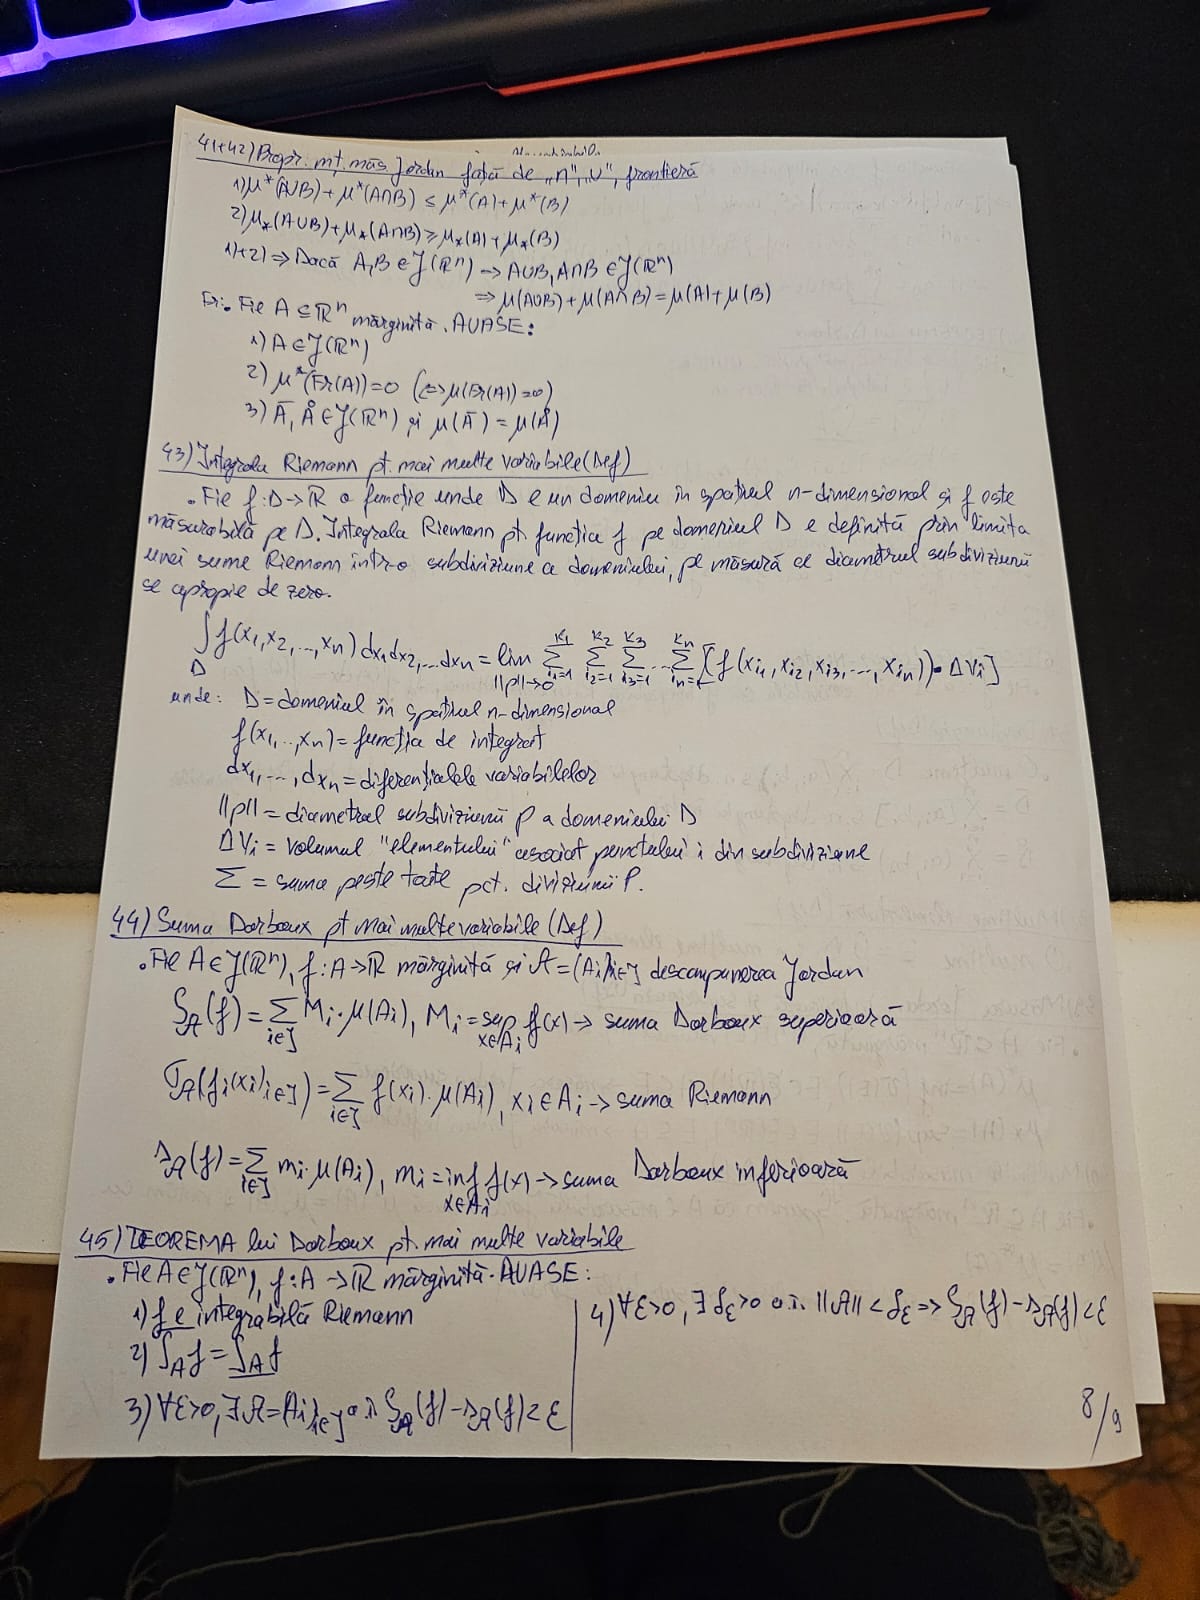 41+42) Propr. mț. măs. Jordan față de „∩”, „∪”, frontieră
1) μ*(A∪B)+μ*(A∩B) ≤ μ*(A)+μ*(B)
2) μ⁎(A∪B)+μ⁎(A∩B) ≥ μ⁎(A)+μ⁎(B)
1)+2) ⇒ Dacă A,B ∈ J(ℝⁿ) → A∪B, A∩B ∈ J(ℝⁿ)
⇒ μ(A∪B)+μ(A∩B)=μ(A)+μ(B)
Fr: • Fie A ⊆ ℝⁿ mărginită. AUASE:
1) A ∈ J(ℝⁿ)
2) μ*(Fr(A))=0 (⇔ μ(Fr(A))=0)
3) Ā, Å ∈ J(ℝⁿ) și μ(Ā) = μ(Å)
43) Integrala Riemann pt. mai multe variabile (Def)
• Fie f: D→ℝ o funcție unde D e un domeniu în spațiul n-dimensional și f este
măsurabilă pe D. Integrala Riemann pt. funcția f pe domeniul D e definită prin limita
unei sume Riemann într-o subdiviziune a domeniului, pe măsură ce diametrul subdiviziunii
se apropie de zero.
∫_D f(x₁,x₂,...,xₙ) dx₁dx₂...dxₙ = lim_{||p||→0} Σ_{i₁=1}^{k₁} Σ_{i₂=1}^{k₂} Σ_{i₃=1}^{k₃} ... Σ_{iₙ=1}^{kₙ} [f(x_{i₁}, x_{i₂}, x_{i₃}, ..., x_{iₙ})) • ΔVᵢ]
unde: D = domeniul în spațiul n-dimensional
f(x₁,..,xₙ) = funcția de integrat
dx₁,...,dxₙ = diferențialele variabilelor
||p|| = diametrul subdiviziunii p a domeniului D
ΔVᵢ = volumul "elementului" asociat punctului i din subdiviziune
Σ = suma peste toate pct. diviziunii P.
44) Suma Darboux pt mai multe variabile (Def)
• Fie A∈J(ℝⁿ), f: A→ℝ mărginită și 𝒜 = (Aᵢ)_{i∈J} descompunerea Jordan
S_𝒜(f) = Σ_{i∈J} Mᵢ·μ(Aᵢ), Mᵢ = sup_{x∈Aᵢ} f(x) → suma Darboux superioară
σ_𝒜(f; (xᵢ)_{i∈J}) = Σ_{i∈J} f(xᵢ)·μ(Aᵢ), xᵢ∈Aᵢ → suma Riemann
s_𝒜(f) = Σ_{i∈J} mᵢ·μ(Aᵢ), mᵢ = inf_{x∈Aᵢ} f(x) → suma Darboux inferioară
45) TEOREMA lui Darboux pt. mai multe variabile
• Fie A∈J(ℝⁿ), f: A→ℝ mărginită. AUASE:
1) f e integrabilă Riemann
2) ∫̅_A f = ∫̲_A f
3) ∀ε>0, ∃𝒜=(Aᵢ)_{i∈J} a.î. S_𝒜(f) − s_𝒜(f) < ε
4) ∀ε>0, ∃δ_ε>0 a.î. ||𝒜|| < δ_ε ⇒ S_𝒜(f) − s_𝒜(f) < ε
8/9